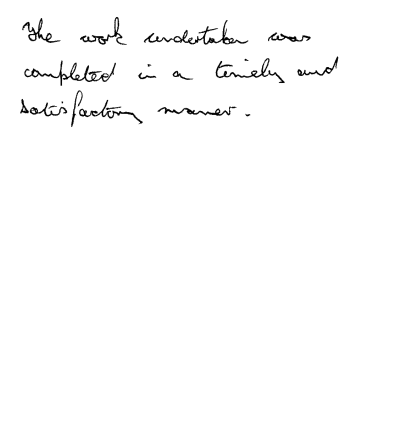 The work undertaken was
completed in a timely and
satisfactory manner.